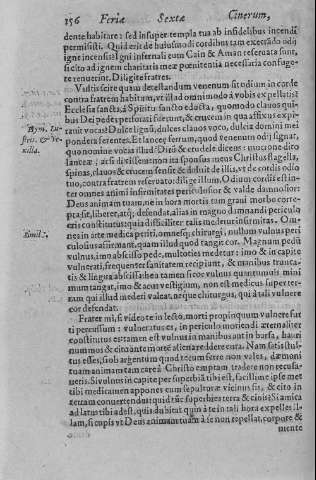 156 Feriæ Sextæ Cinerum,
dente habitare: sed insuper templa tua ab infidelibus incendi
permisisti. Quid erit de huiusmodi cordibus tam execrãdo odij
igne incensis? igni infernali cum Cain & Aman referuata sunt,
si cito ad ignem charitatis meæ pœnitentia necessaria confuge-
te renuerint. Diligite fratres.
Vultis scire quam detestandum venenum sit odium in corde
contra fratrem habitum, vt illud omni modo à vobis expellatis?
Ecclesia sancta, à Spiritu sancto ducta, quomodo clauos qui-
bus Dei pedes perforati fuerunt, & crucem in qua affixus expi-
Bym. Lu- rauit vocat? Dulce lignũ, dulces clauos voco, dulcia domini mei
stris. & Ve- pondera ferentes. Et lanceę ferrum, quod venenum odij signat,
xilla. quo nomine vocat illud? Diro & crudele dicens: mucrone diro
lanceæ: ac si dixisset non ita sponsus meus Christus flagella,
spinas, clauos & crucem sensit & doluit de illis, vt de cordis odio
tuo, contra fratrem reseruato: diligę illum. Odium cordis est in-
ter omnes animi infirmitates periculosior & valde damnosior:
Deus animam tuam, ne in hora mortis tam graui morbo corre-
pta sit, liberet, atq; defendat, alias in magno damnandi periculo
eris constitutus: quia difficiliter talis medetur infirmitas. Om-
nes in arte medica periti, omnesq; chirurgi, nullum vulnus peri
culosius affirmant, quam illud quod tangit cor. Magnum pedũ
Simile. vulnus, imo abscisso pede, multoties medetur: imo & in capite
vulnerati, frequenter sanitatem recipiunt, & manibus trunca-
tis & lingua abscissa: hec tamen si cor vulnus quantumuis mini
mum tangat, imo & acus vestigium, non est medicus super ter-
ram qui illud mederi valeat, neque chirurgus, qui à tali vulnere
cor defendat.
Frater mi, si video te in lecto, morti propinquum vulnere fur
ti percussum: vulneratus es, in periculo moriendi æternaliter
constitutus es: tamen est vulnus in manibus aut in bursa, hauri
nummos & cito ante mortẽ alienare ddere cura. Nam satis stul-
tus esses, si ob argentum quod tecum ferre non vales, dæmoni
tuam animam tam care à Christo emptam tradere non recusa-
ueris. Si vulnus in capite per superbiã tibi est, facilime ipse met
tibi medicamen appones cum sepulturæ vicinus sis, & cito in
terram conuertendus: quid tũc superbies terra & cinis? Si amica
ad latus tibi adest, quis dubitat quin à te in tali hora expelles il-
lam, si cupis vt Deus animam tuam à se non repellat, corpore &
mente